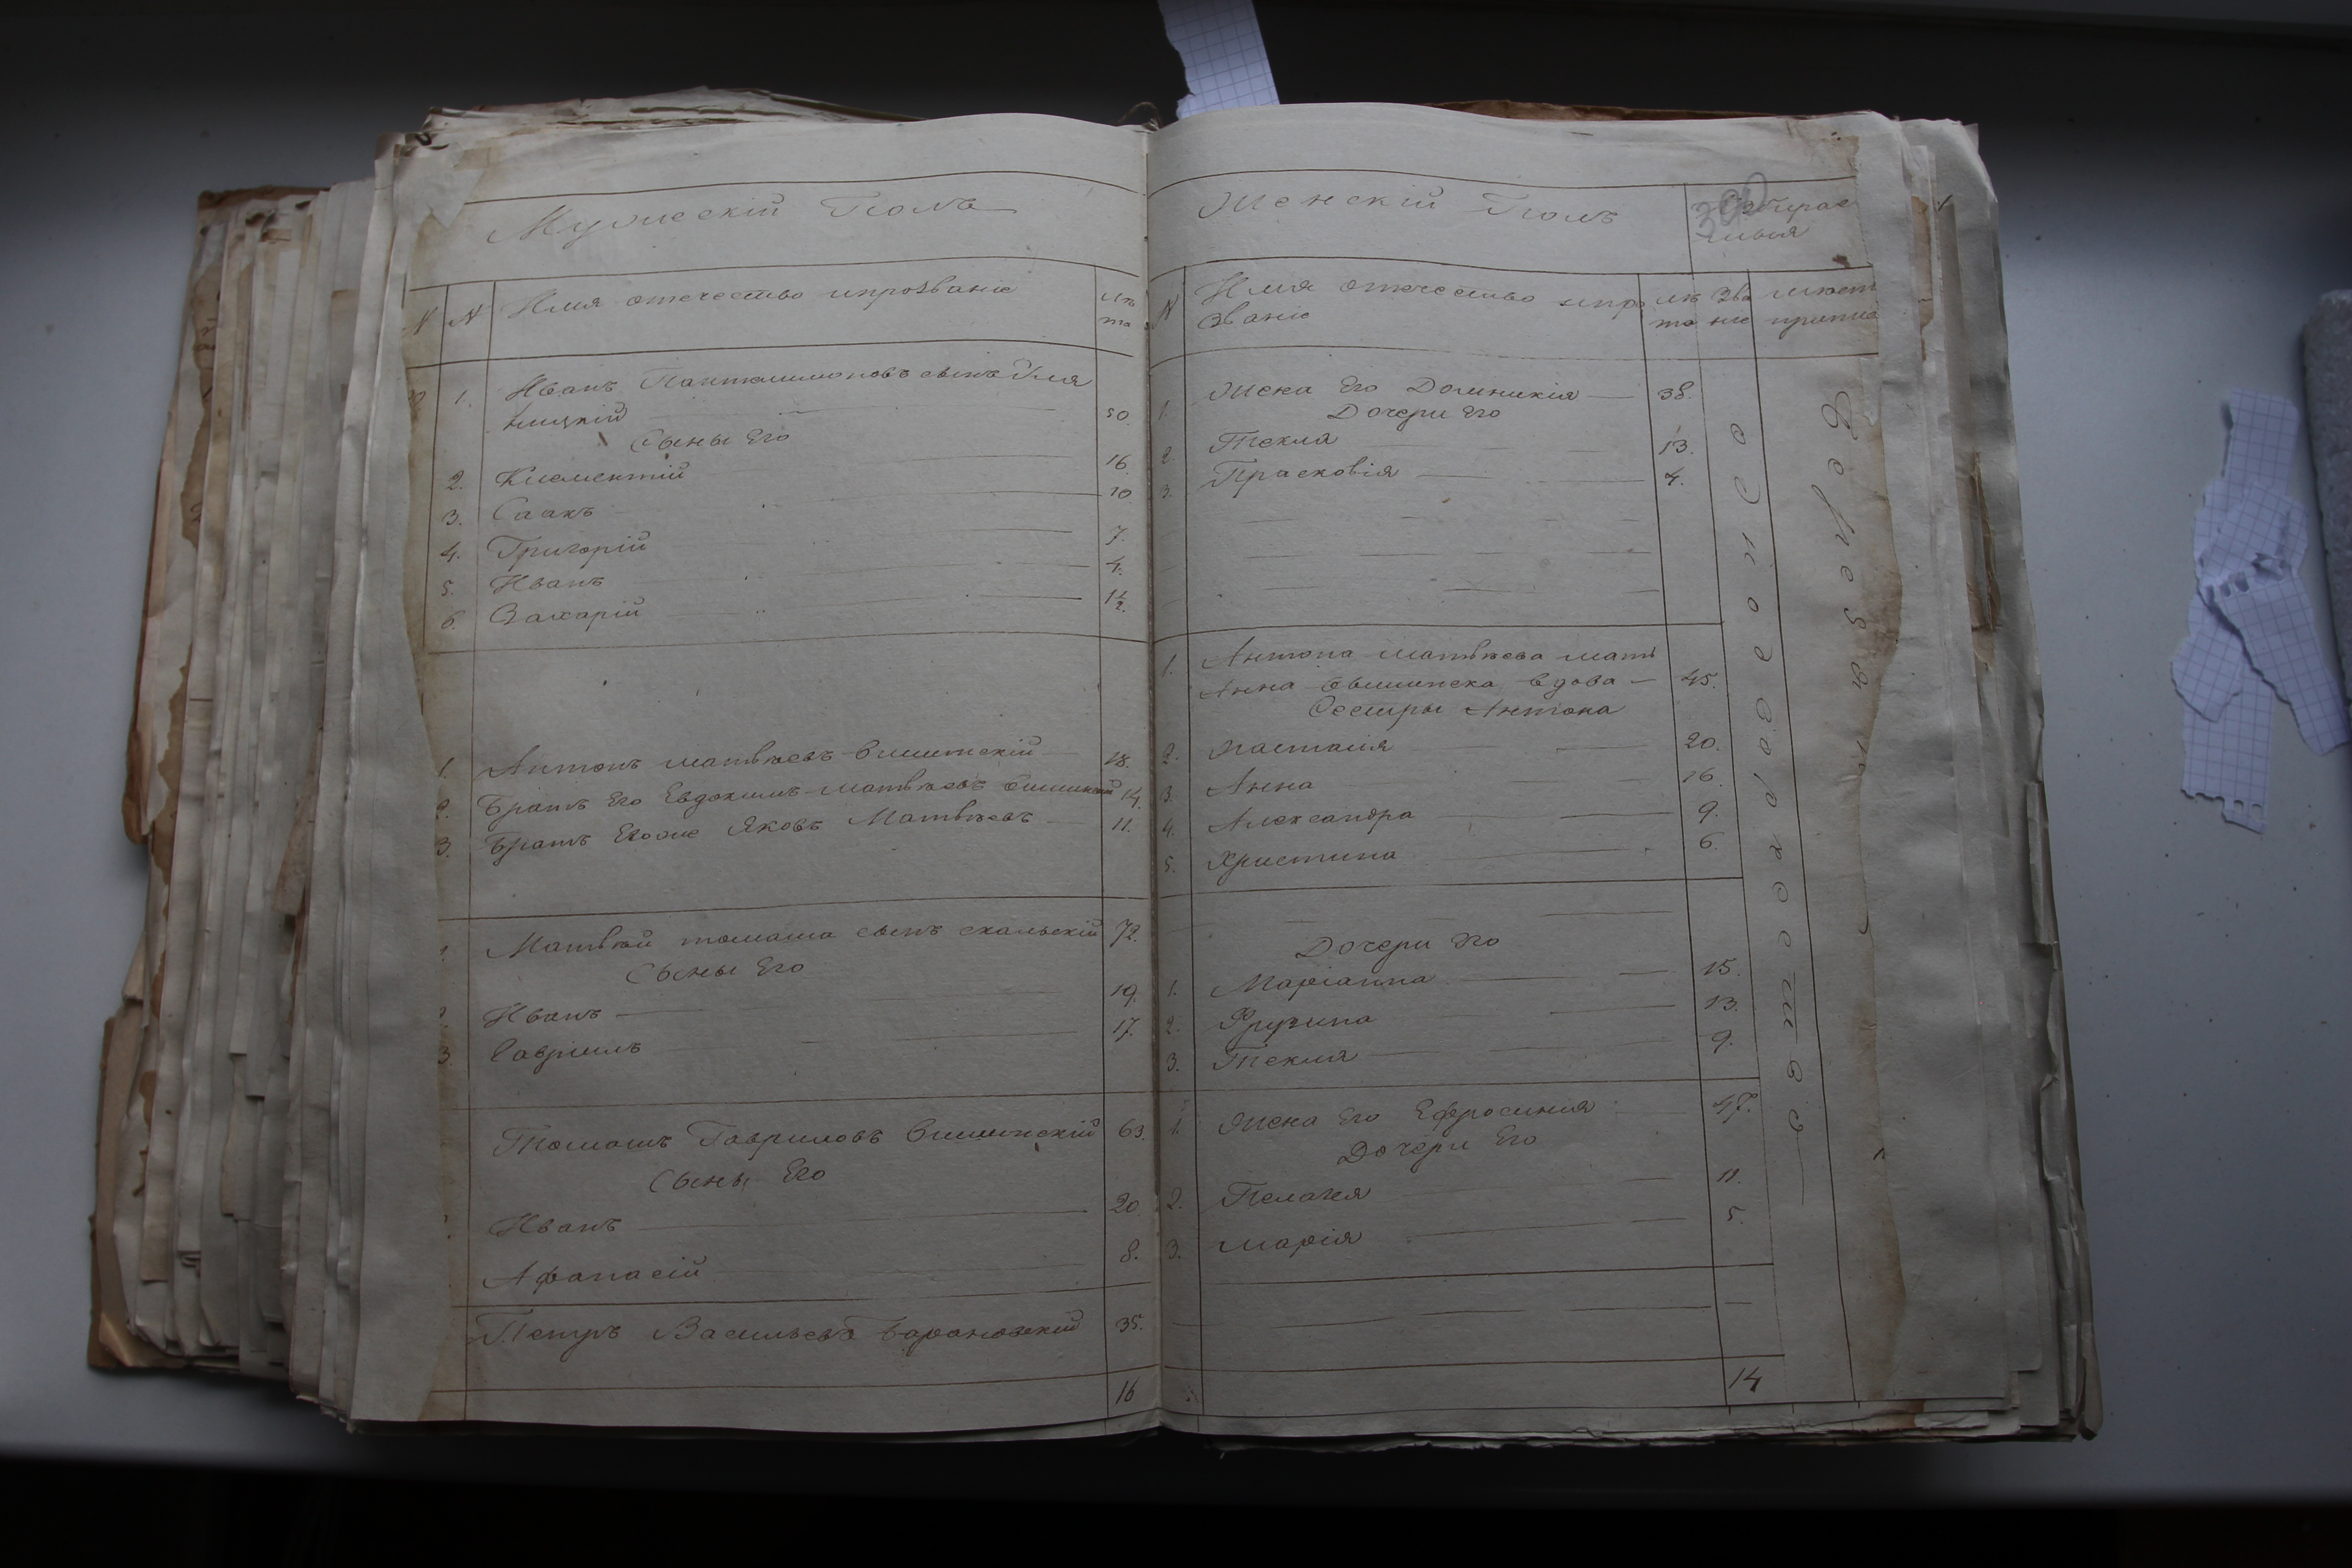 Мужескій Полъ
N N Имя отечество ипрозваніе лѣ та
1. Иванъ Пантелимоновъ сынъ
50.
Сыны Его
2. Климентій 16.
3. Саакъ 10.
4. Григорій 7.
5. Иванъ 4.
6. Захарій 1 1/2.
1. Антонъ матвѣевъ вишинскій 18.
2. Братъ Его Евдокимъ матвѣевъ вишинскій 14.
3. Братъ Егоже Яковъ Матвѣевъ 11.
Матвѣй томаша сынъ скальскій 72.
Сыны Его
Иванъ 19.
3 Гаврилъ 17.
Томашъ Гавриловъ вишинскій 63.
Сыны Его
Иванъ 20.
Афанасій 8.
Петръ Васильевъ Барановскій 35.
16
Женскій Полъ
N Имя отечество ипро лѣ Зва
званіе та ніе
1. Жена Его Доминикія 38.
Дочери Его
2. Текля 13.
3. Прасковія 4.
1. Антона матвѣева мать
Анна вдова 45.
Сестры Антона
2. Настасія 20.
3. Анна 16.
4. Александра 9.
5. Христина 6.
Дочери Его
1. Маріанна 15.
2. Фрузина 13.
3. Текля 9.
1. Жена Его Ефросинія 47.
Дочери Его
2. Пелагея 11.
3. Марія 5.
14